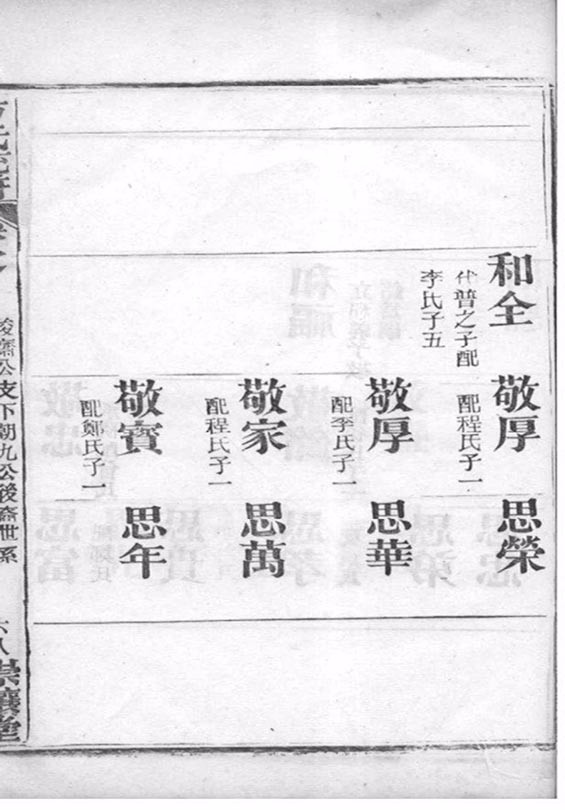 和全
代普之子配
李氏子五
敬厚
配程氏子一
思榮
敬厚
配李氏子一
思華
敬家
配程氏子一
思萬
敬寶
配鄭氏子一
思年
公支下朝九公後裔世系
六八